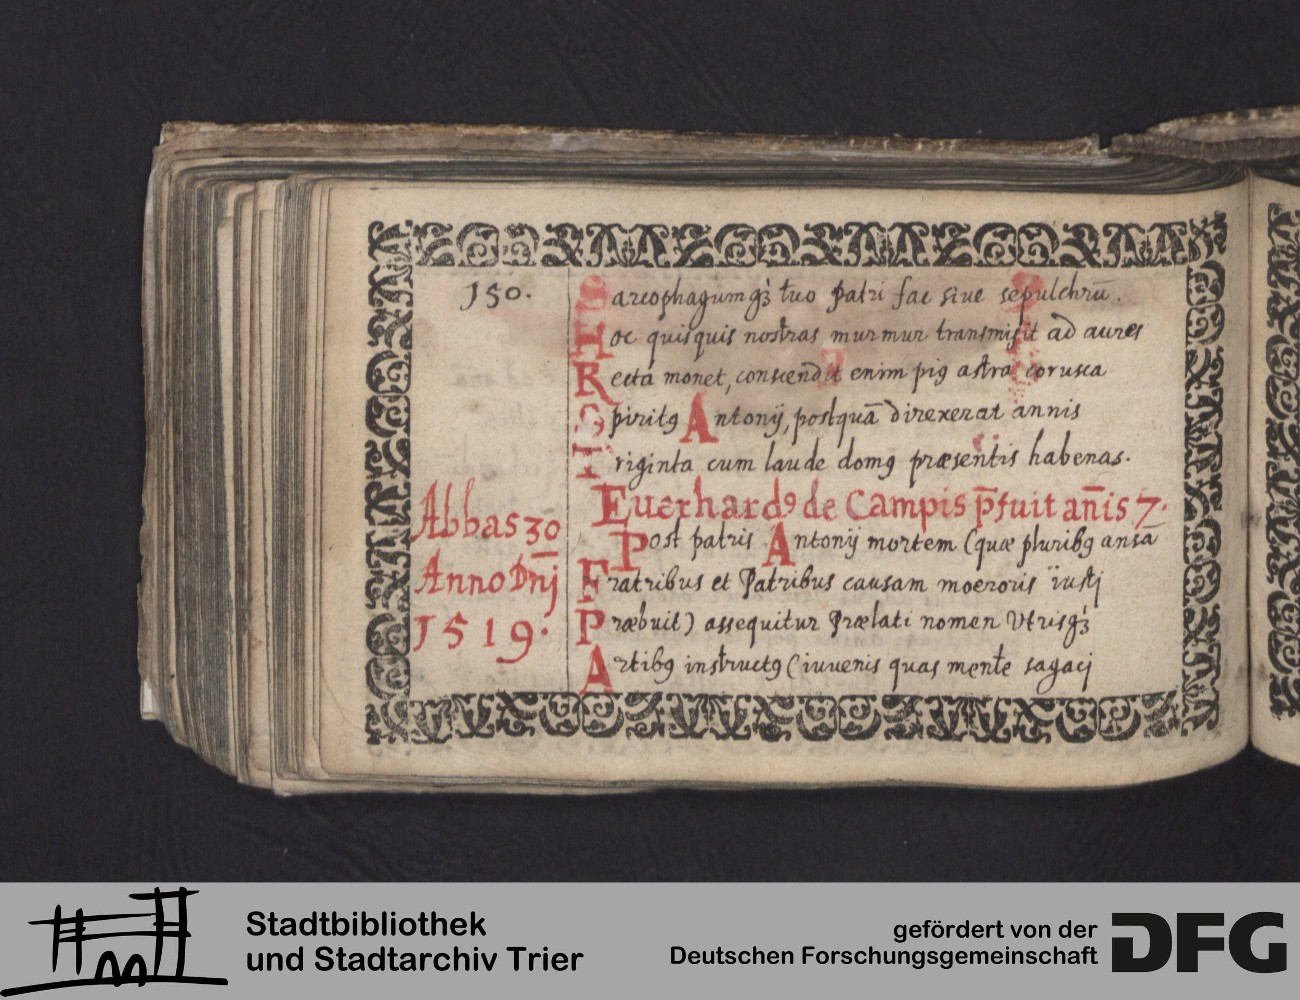 150.
Sarcophagumqꝫ tuo patri fac siue sepulchrū.
Hoc quisquis nostras murmur transmisit ad aures
Recta monet, conscendit enim piꝰ astra corusca
Spiritꝰ Antonij, postquā direxerat annis
Triginta cum laude domꝰ præsentis habenas.
Abbas 30
Anno Dn̄j
1519.
Euerhardꝰ de Campis p̄fuit an̄is 7.
Post patris Antonij mortem (quæ pluribꝰ ansā
Fratribus et Patribus causam moeroris iustj
Præbuit) assequitur Prælati nomen Vtrisqꝫ
Artibꝰ instructꝰ (iuuenis quas mente sagacj
Stadtbibliothek
und Stadtarchiv Trier
gefördert von der
Deutschen Forschungsgemeinschaft
DFG